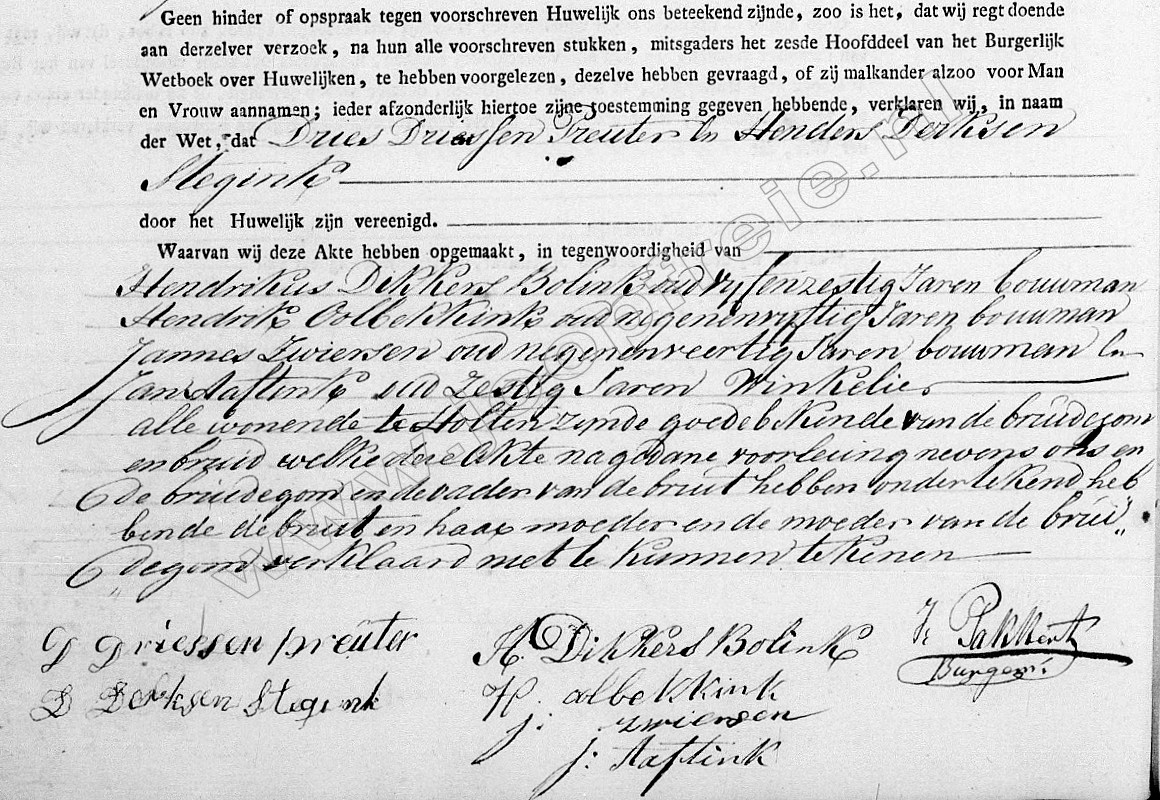 Geen hinder of opspraak tegen voorschreven Huwelijk ons beteekend zijnde, zoo is het, dat wij regt doende
aan derzelver verzoek, na hun alle voorschreven stukken, mitsgaders het zesde Hoofddeel van het Burgerlijk
Wetboek over Huwelijken, te hebben voorgelezen, dezelve hebben gevraagd, of zij malkander alzoo voor Man
en Vrouw aannamen; ieder afzonderlijk hiertoe zijne toestemming gegeven hebbende, verklaren wij, in naam
der Wet, dat Dries Driessen Preuter En Henders Derksen
Stegink
door het Huwelijk zijn vereenigd.
Waarvan wij deze Akte hebben opgemaakt, in tegenwoordigheid van
Hendrikus Dikkers Bolink oud vyfenzestig Jaren bouwman
Hendrik Oolbekkink oud negenenvyftig Jaren bouwman
Jannes Zwiersen oud negenenveertig Jaren bouwman En
Jan Aaftink oud Zestig Jaren Winkelier
alle wonende te Holten zynde goede bekende van de bruidegom
en bruid welke deze Akte na gedane voorlesing nevens ons en
de bruidegom en de vader van de bruit hebben ondertekend heb
bende de bruit en haar moeder en de moeder van de brui„
„degom verklaard niet te kunnen tekenen
D Driessen preuter
H Dikkers Bolink
D Derksen Stegink
H. olbekkink
j: zwiersen
j: Aaftink
Burgemr
www.jooplreie.nl